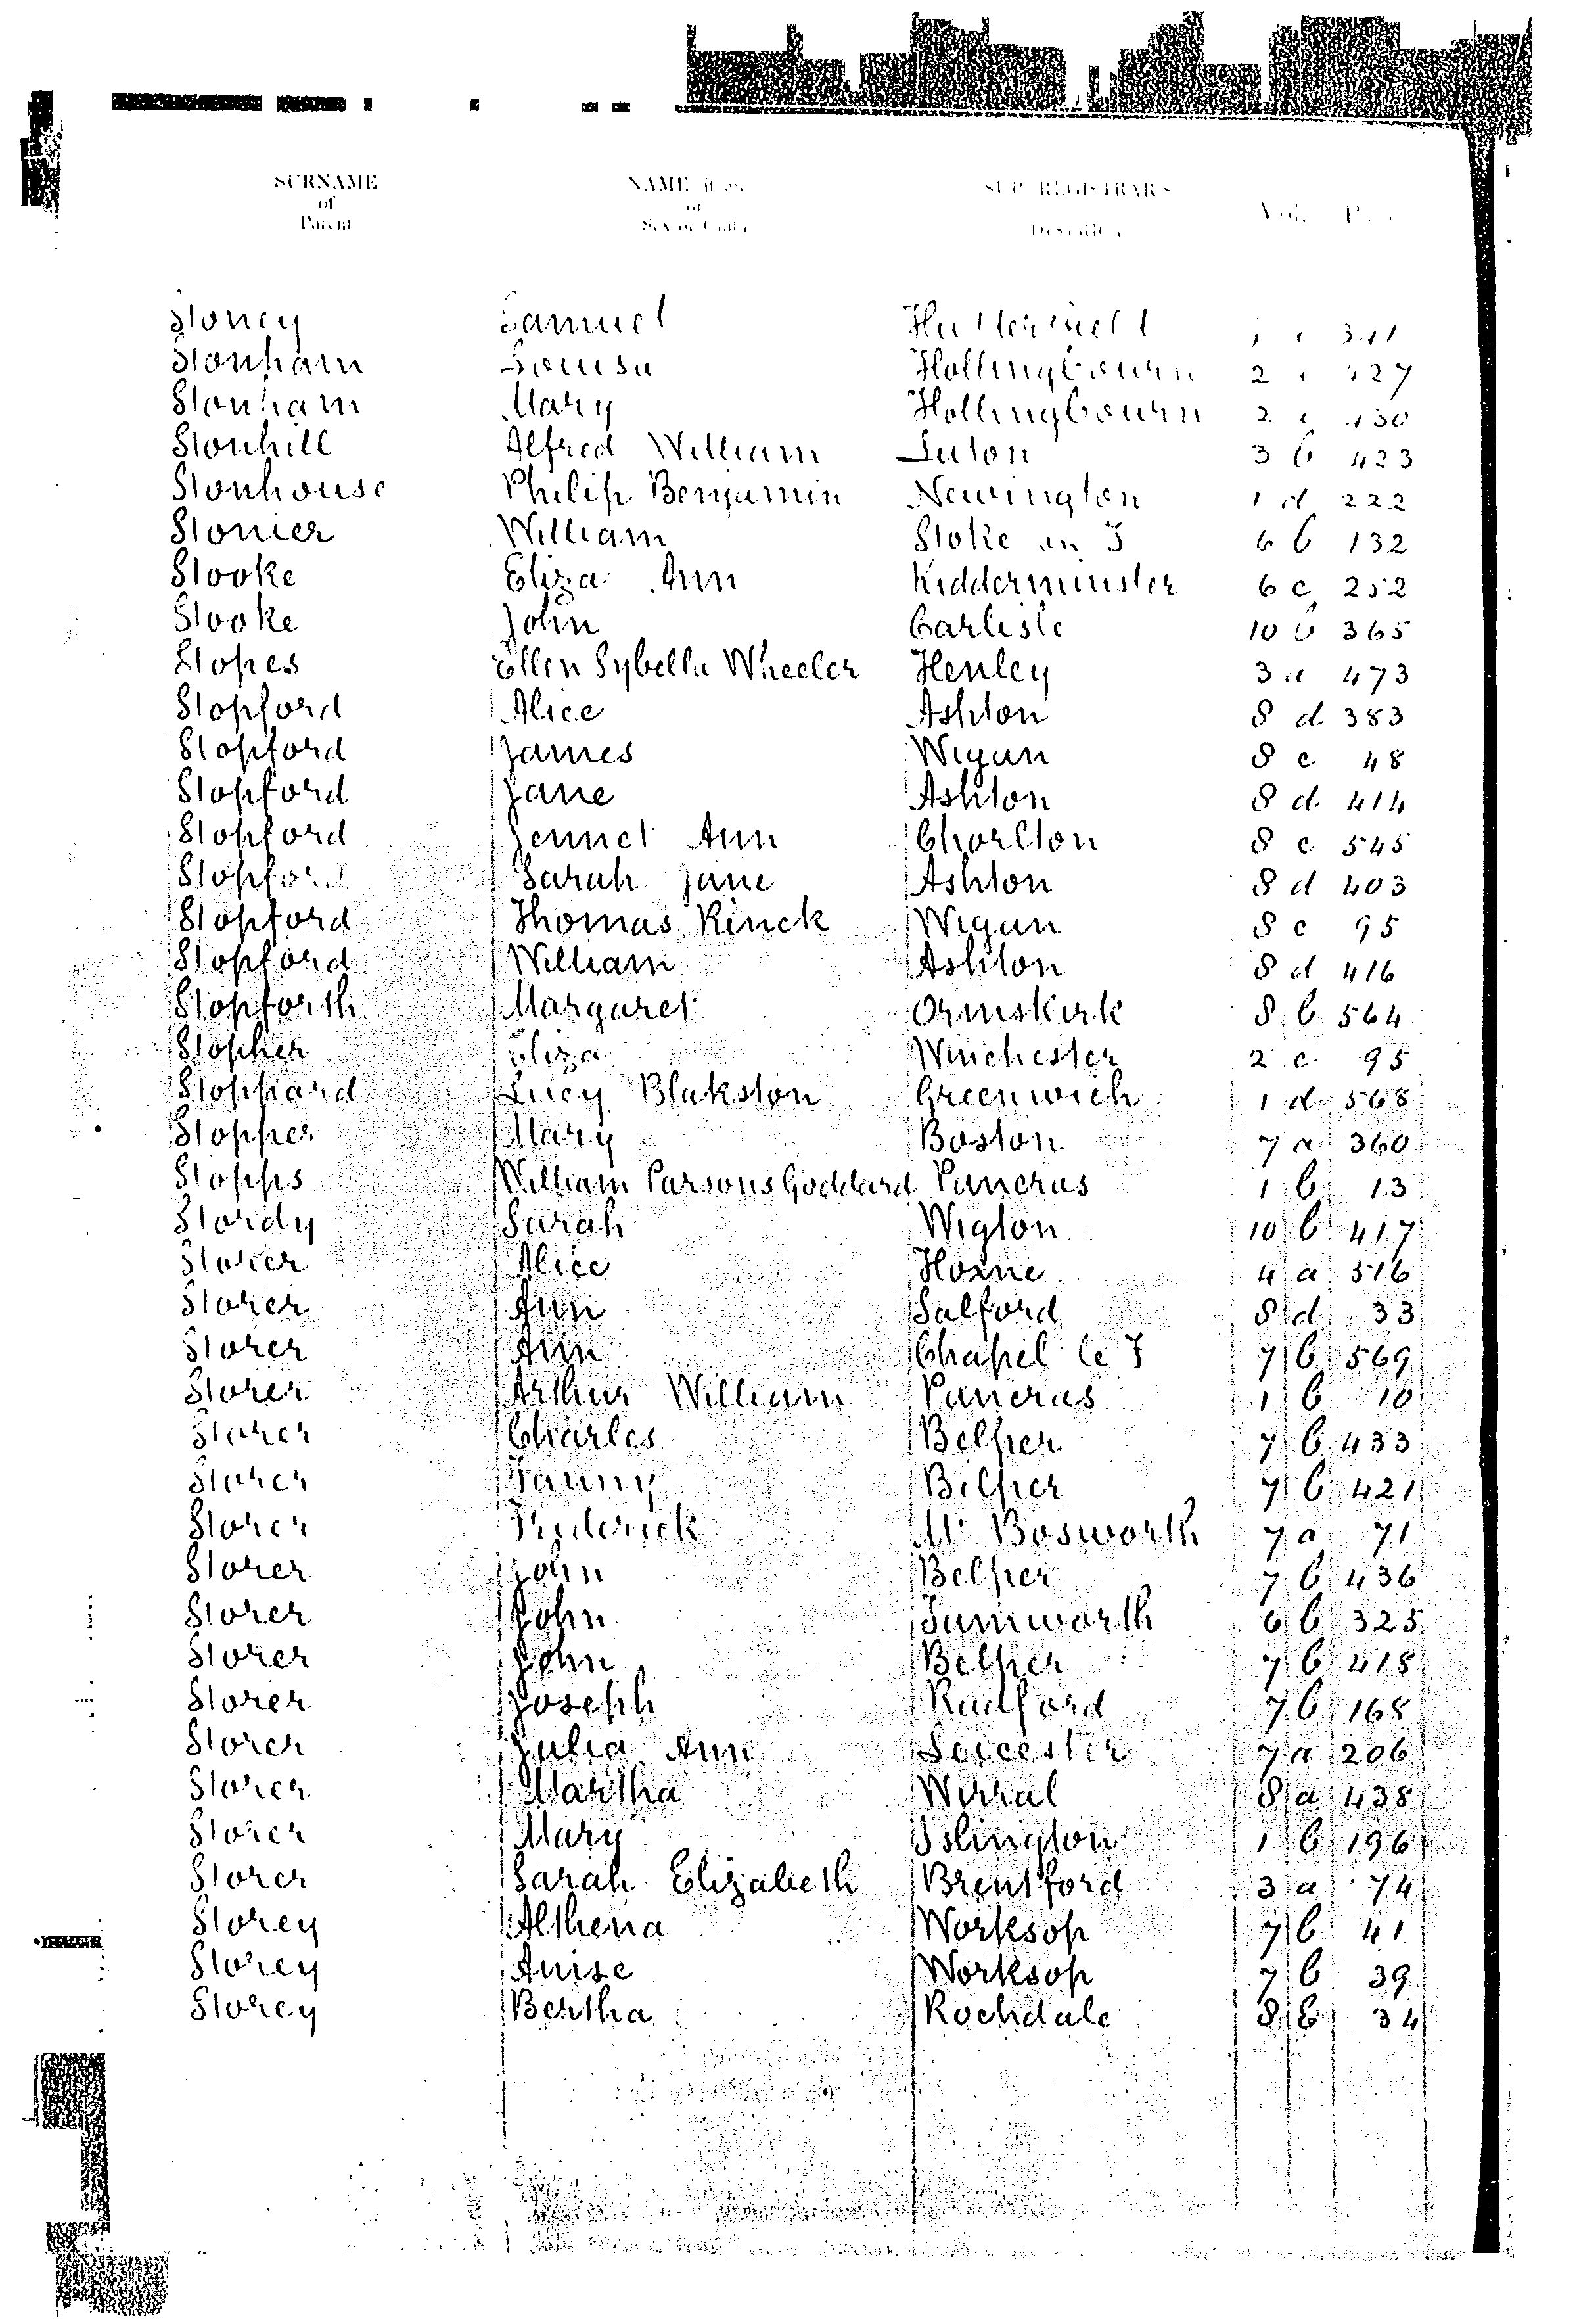 SURNAME of Parent NAME if any or Sex of Child SUP. REGISTRAR'S DISTRICT Vol. Page
Stoney Samuel Huddersfield 341
Stonham Louisa Hollingbourn 2 427
Stonham Mary Hollingbourn 2
Stonhill Alfred William Luton 3 b 423
Stonhouse Philip Benjamin Newington 1 d 222
Stonier William Stoke on T 6 b 132
Stooke Eliza Ann Kidderminster 6 c 252
Stooke John Carlisle 10 b 365
Stopes Ellen Sybella Wheeler Henley 3 a 473
Stopford Alice Ashton 8 d 383
Stopford James Wigan 8 c 48
Stopford Jane Ashton 8 d 414
Stopford Jennet Ann Chorlton 8 c 545
Stopford Sarah Jane Ashton 8 d 403
Stopford Thomas Rinck Wigan 8 c 95
Stopford William Ashton 8 d 416
Stopforth Margaret Ormskirk 8 b 564
Stopher Eliza Winchester 2 c 95
Stoppard Lucy Blakston Greenwich 1 d 568
Stopper Mary Boston 7 a 360
Stopps William Parsons Goddard Pancras 1 b 13
Stordy Sarah Wigton 10 b 417
Storer Alice Hoxne 4 a 516
Storer Ann Salford 8 d 33
Storer Ann Chapel le F 7 b 569
Storer Arthur William Pancras 1 b 10
Storer Charles Belper 7 b 433
Storer Fanny Belper 7 b 421
Storer Frederick Mt Bosworth 7 a 71
Storer John Belper 7 b 436
Storer John Tamworth 6 b 325
Storer John Belper 7 b 418
Storer Joseph Radford 7 b 168
Storer Julia Ann Leicester 7 a 206
Storer Martha Wirral 8 a 438
Storer Mary Islington 1 b 196
Storer Sarah Elizabeth Brentford 3 a 74
Storey Althena Worksop 7 b 41
Storey Anise Worksop 7 b 39
Storey Bertha Rochdale 8 b 34